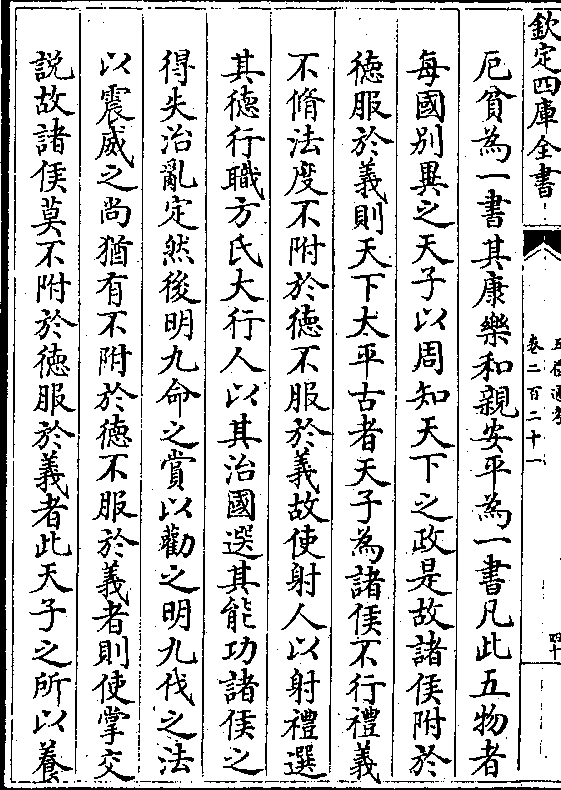 欽定四庫全書
五禮通考
卷二百二十一
四十
厄貧為一書其康樂和親安平為一書凡此五物者
每國别異之天子以周知天下之政是故諸侯附於
徳服於義則天下太平古者天子為諸侯不行禮義
不脩法度不附於德不服於義故使射人以射禮選
其德行職方氏大行人以其治國選其能功諸侯之
得失治亂定然後明九命之賞以勸之明九伐之法
以震威之尚猶有不附於德不服於義者則使掌交
説故諸侯莫不附於徳服於義者此天子之所以養